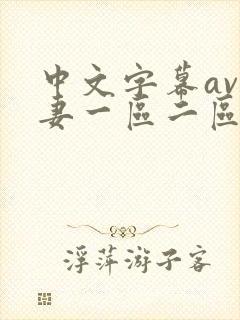 中文字幕av
妻一區二區
浮萍游子客